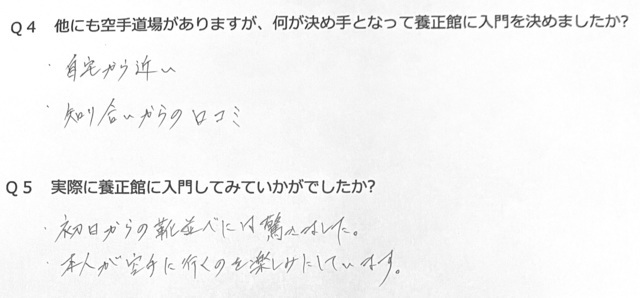 Q4 他にも空手道場がありますが、何が決め手となって養正館に入門を決めましたか?
・自宅から近い
・知り合いからの口コミ
Q5 実際に養正館に入門してみていかがでしたか?
・初日からの靴並べには驚きました。
・本人が空手に行くのを楽しみにしています。